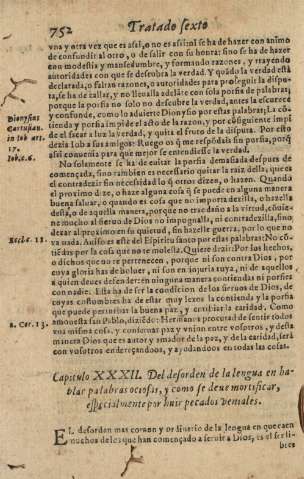 752 Tratado sexto
vna y otra vez que es assi, o no es assi: ni se ha de hazer con animo
de confundir al otro, o de salir con su honra: sino se ha de hazer
con modestia y mansedumbre, y formando razones, y trayendo
autoridades con que se descubra la verdad. Y quãdo la verdad està
declarada, o faltan razones, o autoridades para proseguir la disputa, se ha de callar, y no lleualla adelãte con sola porfia de palabras;
porque la porfia no solo no descubre la verdad, antes la escurece
Dionysius Cartujan. in Iob art. 17.
y confunde, como lo aduierte Dionysio por estas palabras: La cõtienda y porfia impide el acto de la razon, y por cõsiguiente impide el sacar a luz la verdad, y quita el fruto de la disputa. Por esto
Iob. c. 6.
dezia Iob a sus amigos: Ruego os q̃ me respõdais sin porfia, porq̃
assi conuenia para que mejor se entendiesse la verdad.
No solamente se ha de euitar la porfia demasiada despues de
començada, sino tambien es necessario quitar la raiz della, que es
el contradezir sin necessidad lo q̃ otros dizen, o hazen. Quando
el proximo dize, o haze alguna cosa q̃ se puede en alguna manera
buena saluar, o quando es cosa que no importa dezilla, o hazella
desta, o de aquella manera, porque no trae daño a la virtud, cõuiene
Eccli. 11.
uada. Auiso es este del Espiritu santo por estas palabras: No cõtiendas por la cosa que no te molesta. Quiere dezir: Por los hechos,
o dichos que no te pertenecen, porque ni son contra Dios, por
cuya gloria has de boluer, ni son en injuria tuya, ni de aquellos
a quien deues defender: en ninguna manera contiendas ni porfies
con nadie. Esta ha de ser la condicion de los sieruos de Dios, de
cuyas costumbres ha de estar muy lexos la contienda y la porfia
que puede perturbar la buena paz, y entibiar la caridad. Como
2. Cor. 13.
amonesta san Pablo, diziẽdo: Hermanos procurad de sentir todos
vna misma cosa, y conseruar paz y vnion entre vosotros, y desta
manera Dios que es autor y amador de la paz, y de la caridad, serà
con vosotros endereçandoos, y ayudandoos en todas las cosas.
Capitulo XXXII. Del desorden de la lengua en hablar palabras ociosas, y como se deue mortificar,
especialmente por huir pecados veniales.
EL desorden mas comun y ordinario de la lengua en que caen
muchos de los que han començado a seruir a Dios, es el ser libres